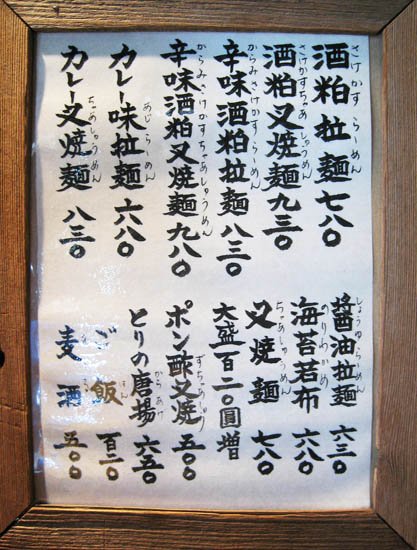 さけかす らーめん
酒粕拉麺 七八〇
さけかすちゃあしゅうめん
酒粕叉焼麺 九三〇
からみさけかす らーめん
辛味酒粕拉麺 八三〇
からみさけかすちゃあしゅうめん
辛味酒粕叉焼麺 九八〇
あじ らーめん
カレー味拉麺 六八〇
ちゃあしゅうめん
カレー叉焼麺 八三〇
しょうゆらーめん
醤油拉麺 六三〇
のりわかめ
海苔若布 六八〇
ちゃあしゅうめん
叉焼麺 七八〇
大盛百二〇圓増
ずちゃあしゅう
ポン酢叉焼 五〇〇
からあげ
とりの唐揚 六五〇
はん
ご飯 百二〇
麦酒 五〇〇